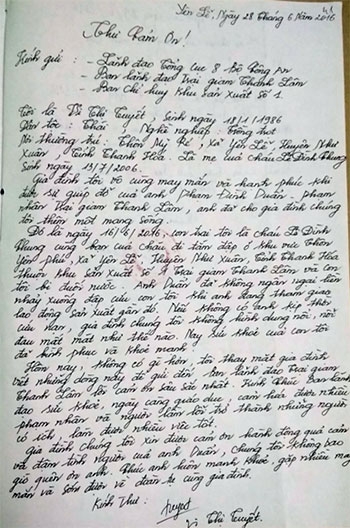 41
Yên Lễ, Ngày 28 Tháng 6 Năm 2016
Thư Cảm Ơn!
Kính gửi: - Lãnh đạo Tổng cục 8 Bộ Công An
- Ban lãnh đạo Trại giam Thanh Lâm
- Ban chỉ huy khu sản xuất số 1.
Tôi là Vi Thị Tuyết, Sinh ngày 18/11/1986
Dân tộc: Thái, Nghề nghiệp: Trồng trọt
Nơi thường trú: Thôn Mỹ Ré, Xã Yên Lễ, Huyện Như
Xuân, Tỉnh Thanh Hóa. Là mẹ của cháu Lê Đình Phung
Sinh ngày 13/7/2006.
Gia đình tôi vô cùng may mắn và hạnh phúc khi
được sự giúp đỡ của anh Phạm Đình Duân. Phạm
nhân Trại giam Thanh Lâm, anh đã cho gia đình chúng
tôi thêm một mạng sống.
Đó là ngày 16/6/2016, con trai tôi là cháu Lê Đình
Phung cùng bạn của cháu đi tắm đập ở khu vực Thôn
Yên Phú, xã Yên Lễ, Huyện Như Xuân, Tỉnh Thanh Hóa
thuộc khu sản xuất số 1 Trại giam Thanh Lâm và con
tôi bị đuối nước. Anh Duân đã không ngần ngại liền
nhảy xuống đập cứu con tôi khi anh đang tham gia
lao động sản xuất gần đó. Nếu không có anh kịp thời
cứu nạn, gia đình chúng tôi không hình dung nổi, nỗi
đau mất mát như thế nào. Nay sức khỏe của con tôi
đã bình phục và khỏe mạnh.
Hôm nay, không có gì hơn, tôi thay mặt gia đình
viết những dòng này để gửi đến ban lãnh đạo Trại giam
Thanh Lâm lời cảm ơn sâu sắc nhất. Kính chúc Ban lãnh
đạo sức khỏe, ngày càng giáo dục, cảm hóa được nhiều
phạm nhân và người lầm lỗi trở thành những người
có ích, làm được nhiều việc tốt.
Gia đình chúng tôi xin được cảm ơn hành động quả cảm
và đầm tình người của anh Duân, chúng tôi không bao
giờ quên ơn anh. Chúc anh luôn mạnh khỏe, gặp nhiều may
mắn và sớm được về đoàn tụ cùng gia đình.
Kính Thư:
Tuyết
Vi Thị Tuyết.